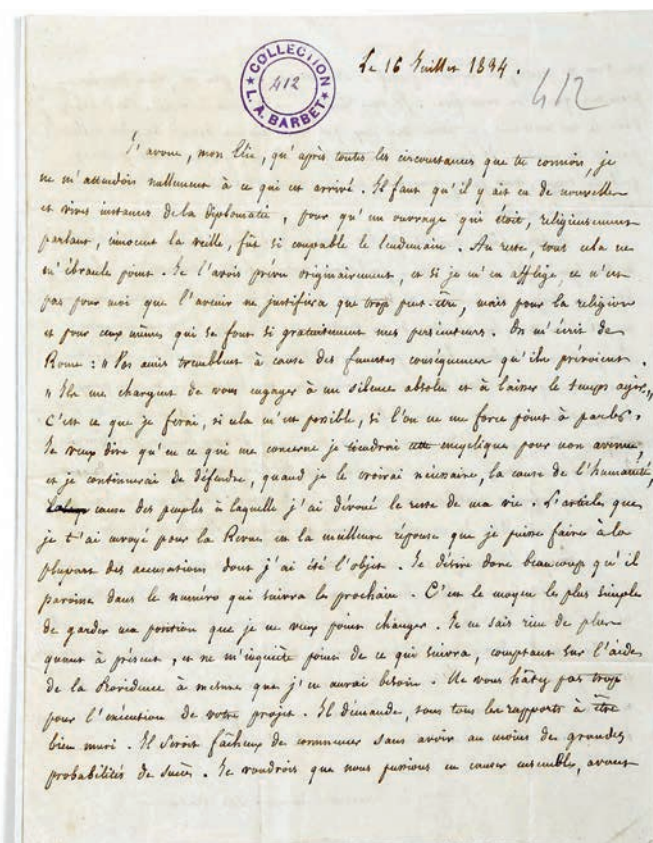 COLLECTION
412
L. A. BARBET
Le 16 Juillet 1834.
412
J'avoue, mon Elie, qu'après toutes les circonstances que tu connois, je
ne m'attendois nullement à ce qui est arrivé. Il faut qu'il y ait eu de nouvelles
et vives instances de la diplomatie, pour qu'un ouvrage qui étoit, religieusement
parlant, innocent la veille, fût si coupable le lendemain. Au reste, tout cela ne
m'ébranle point. Je l'avois prévu originairement, et si je m'en afflige, ce n'est
pas pour moi que l'avenir ne justifiera que trop peut-être, mais pour la religion
et pour ceux mêmes qui se font si gratuitement mes persécuteurs. On m'écrit de
Rome : "Vos amis tremblent à cause des funestes conséquences qu'ils prévoient.
"Ils me chargent de vous engager à un silence absolu et à laisser le temps agir."
C'est ce que je ferai, si cela m'est possible, si l'on ne me force point à parler.
Je veux dire qu'en ce qui me concerne je tiendrai cette encyclique pour non avenue,
et je continuerai de défendre, quand je le croirai nécessaire, la cause de l'humanité,
cause des peuples à laquelle j'ai dévoué le reste de ma vie. L'article que
je t'ai envoyé pour la Revue est la meilleure réponse que je puisse faire à la
plupart des accusations dont j'ai été l'objet. Je désire donc beaucoup qu'il
paroisse dans le numéro qui suivra le prochain. C'est le moyen le plus simple
de garder ma position que je ne veux point changer. Je ne sais rien de plus
quant à présent, et ne m'inquiète point de ce qui suivra, comptant sur l'aide
de la Providence à mesure que j'en aurai besoin. Ne vous hâtez pas trop
pour l'exécution de votre projet. Il demande, sous tous les rapports à être
bien muri. Il seroit fâcheux de commencer sans avoir au moins de grandes
probabilités de succès. Je voudrois que nous pussions en causer ensemble, avant